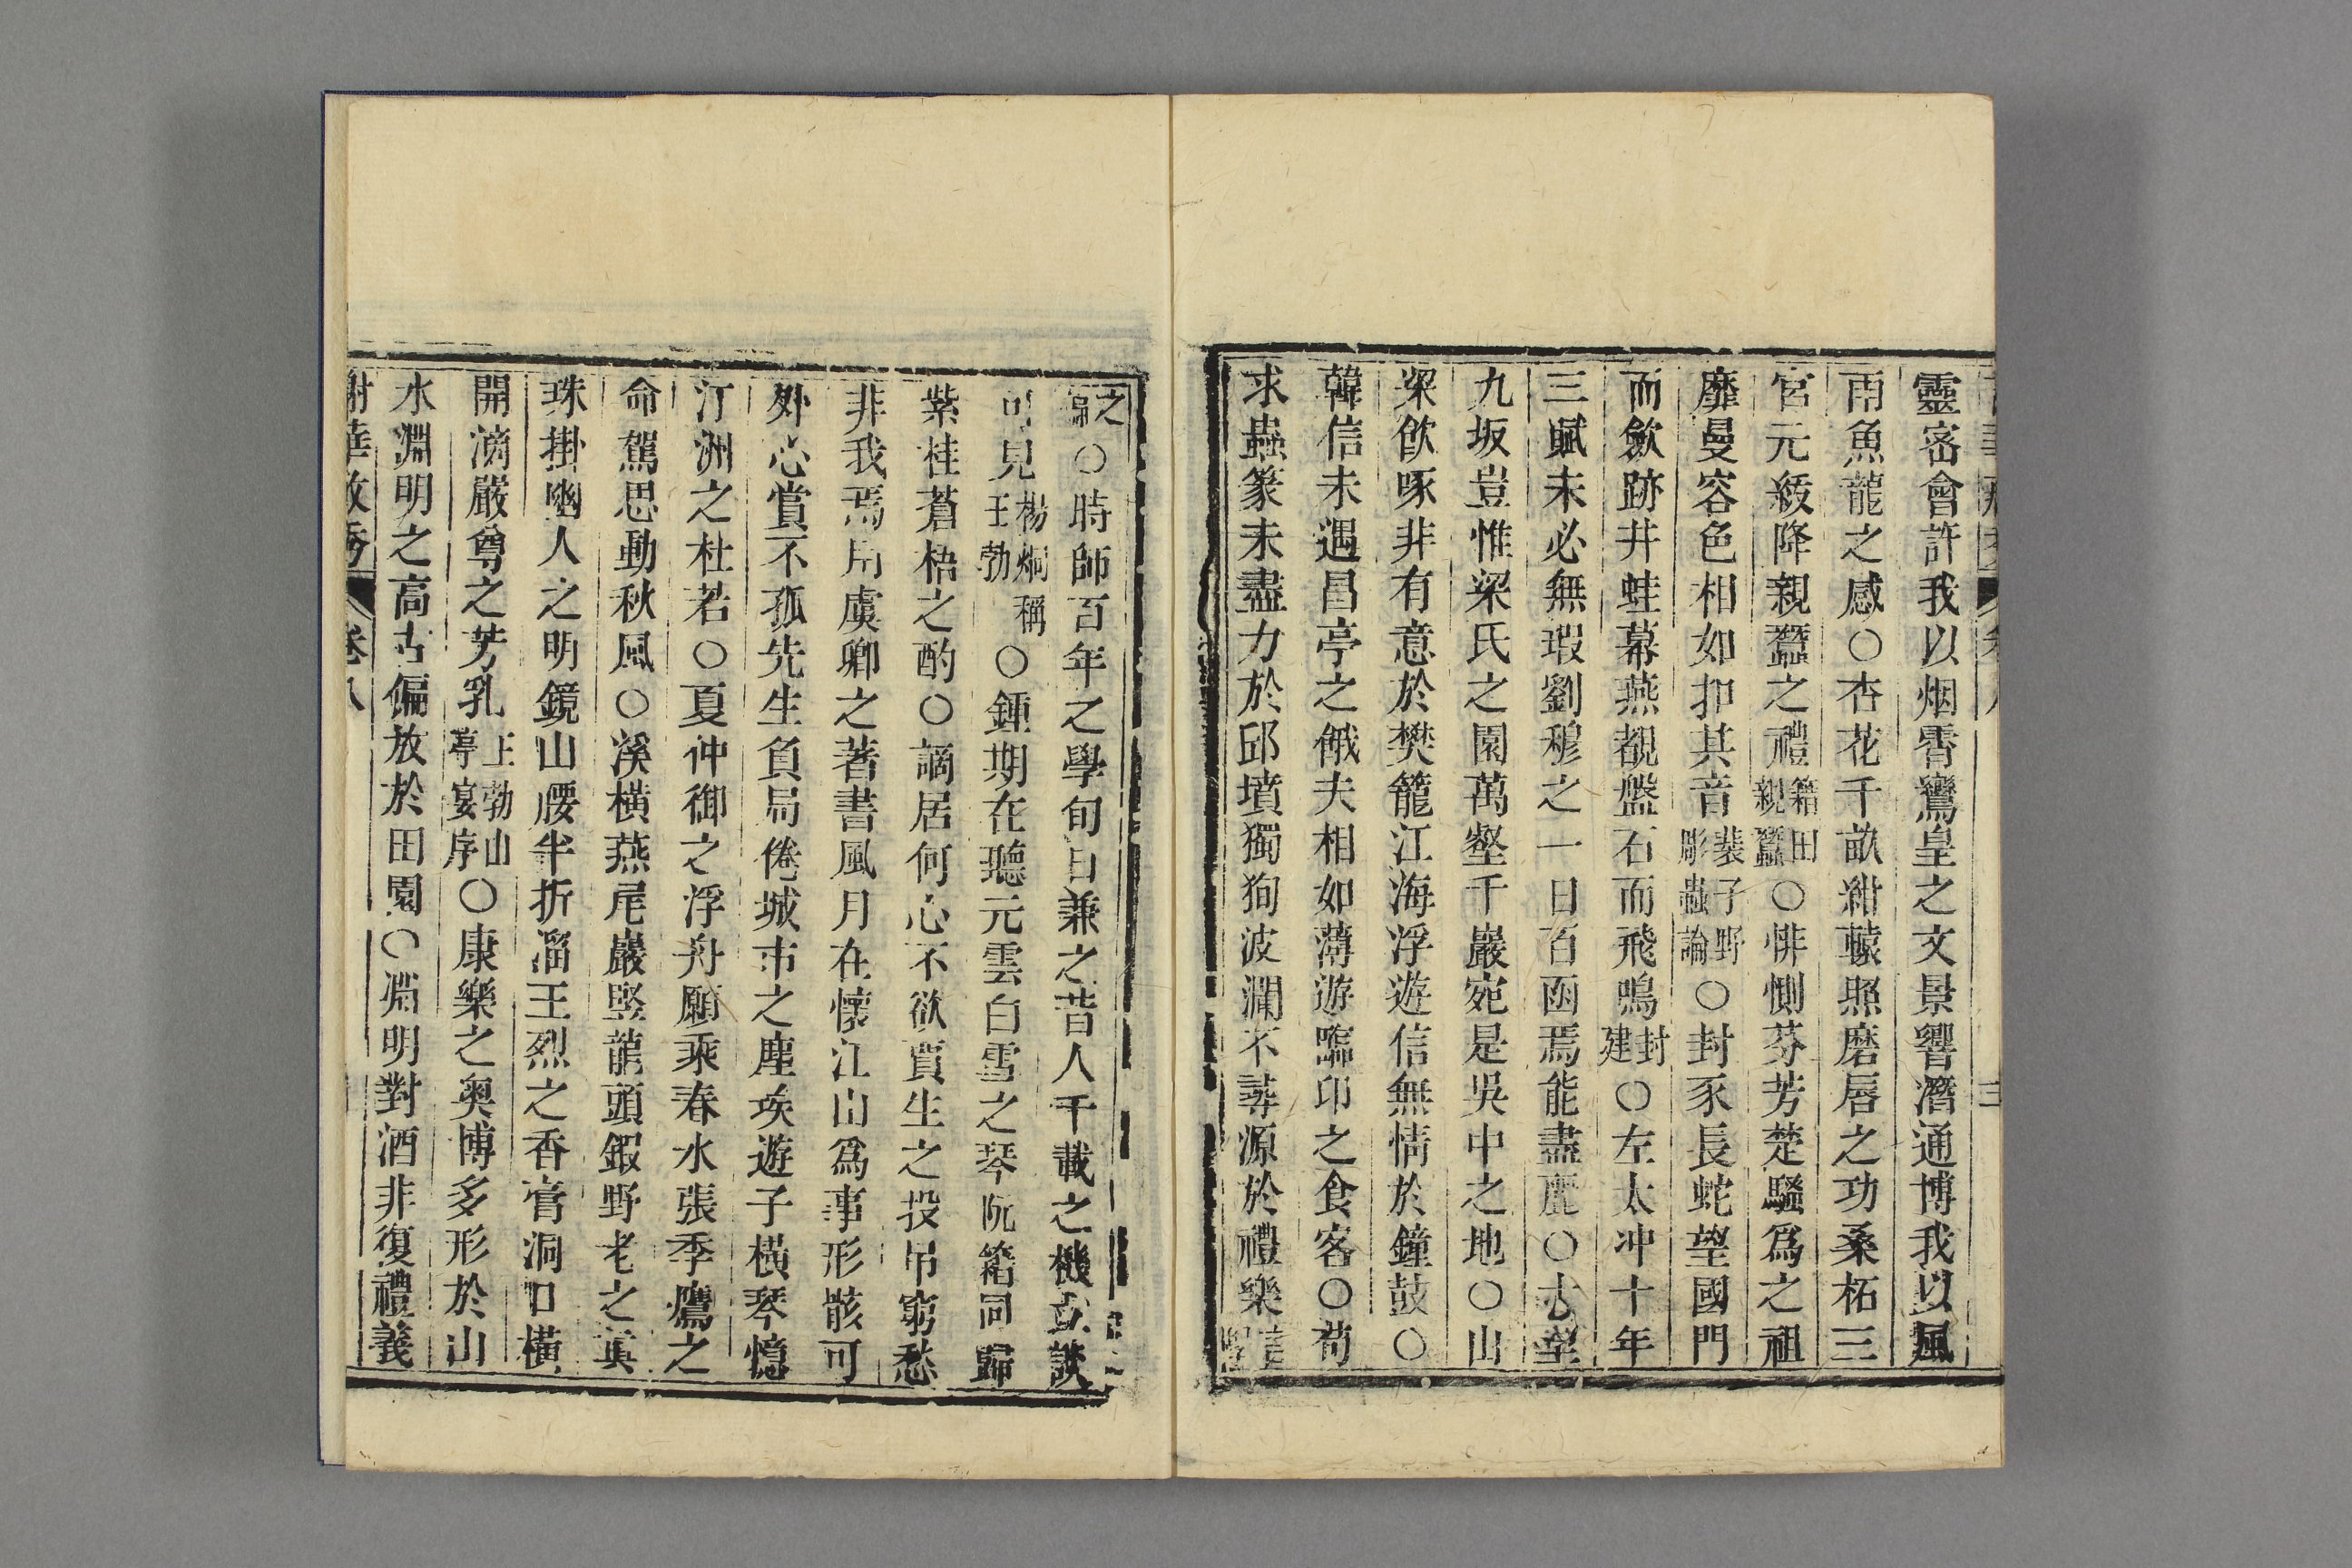 靈密會許我以烟霄鸞皇之文景響潛通博我以風
雨魚龍之感○杏花千畝紺轅照磨唇之功桑柘三
宮元紞降親蠶之禮籍田親蠶○悱惻芬芳楚騷爲之祖
靡曼容色相如扣其音裴子野彫蟲論○封豕長蛇望國門
而歛跡井蛙幕燕覩盤石而飛鳴封建○左太冲十年
三賦未必無瑕劉穆之一日百函焉能盡麗○
九坂豈惟梁氏之園萬壑千巖宛是吳中之地○山
梁飲啄非有意於樊籠江海浮遊信無情於鐘鼓○
韓信未遇昌亭之餓夫相如薄遊臨卭之食客○荀
求蟲篆未盡力於邱墳獨狥波瀾不尋源於禮樂
之○時師百年之學旬日兼之昔人千載之機立談
可見楊炯稱王勃○鍾期在聽元雲白雪之琴阮籍同歸
紫桂蒼梧之酌○謫居何心不欲賈生之投吊窮愁
非我焉用虞卿之著書風月在懷江山爲事形骸可
外心賞不孤先生負局倦城市之塵埃遊子橫琴憶
汀洲之杜若○夏仲御之浮舟願乘春水張季鷹之
命駕思動秋風○溪橫燕尾巖竪龍頭鍜野老之眞
珠掛幽人之明鏡山腰半折溜王烈之香膏洞口橫
開滴嚴尊之芳乳王勃山亭宴序○康樂之奥博多形於山
水淵明之高古偏放於田園○淵明對酒非復禮義
謝華啟秀 卷八